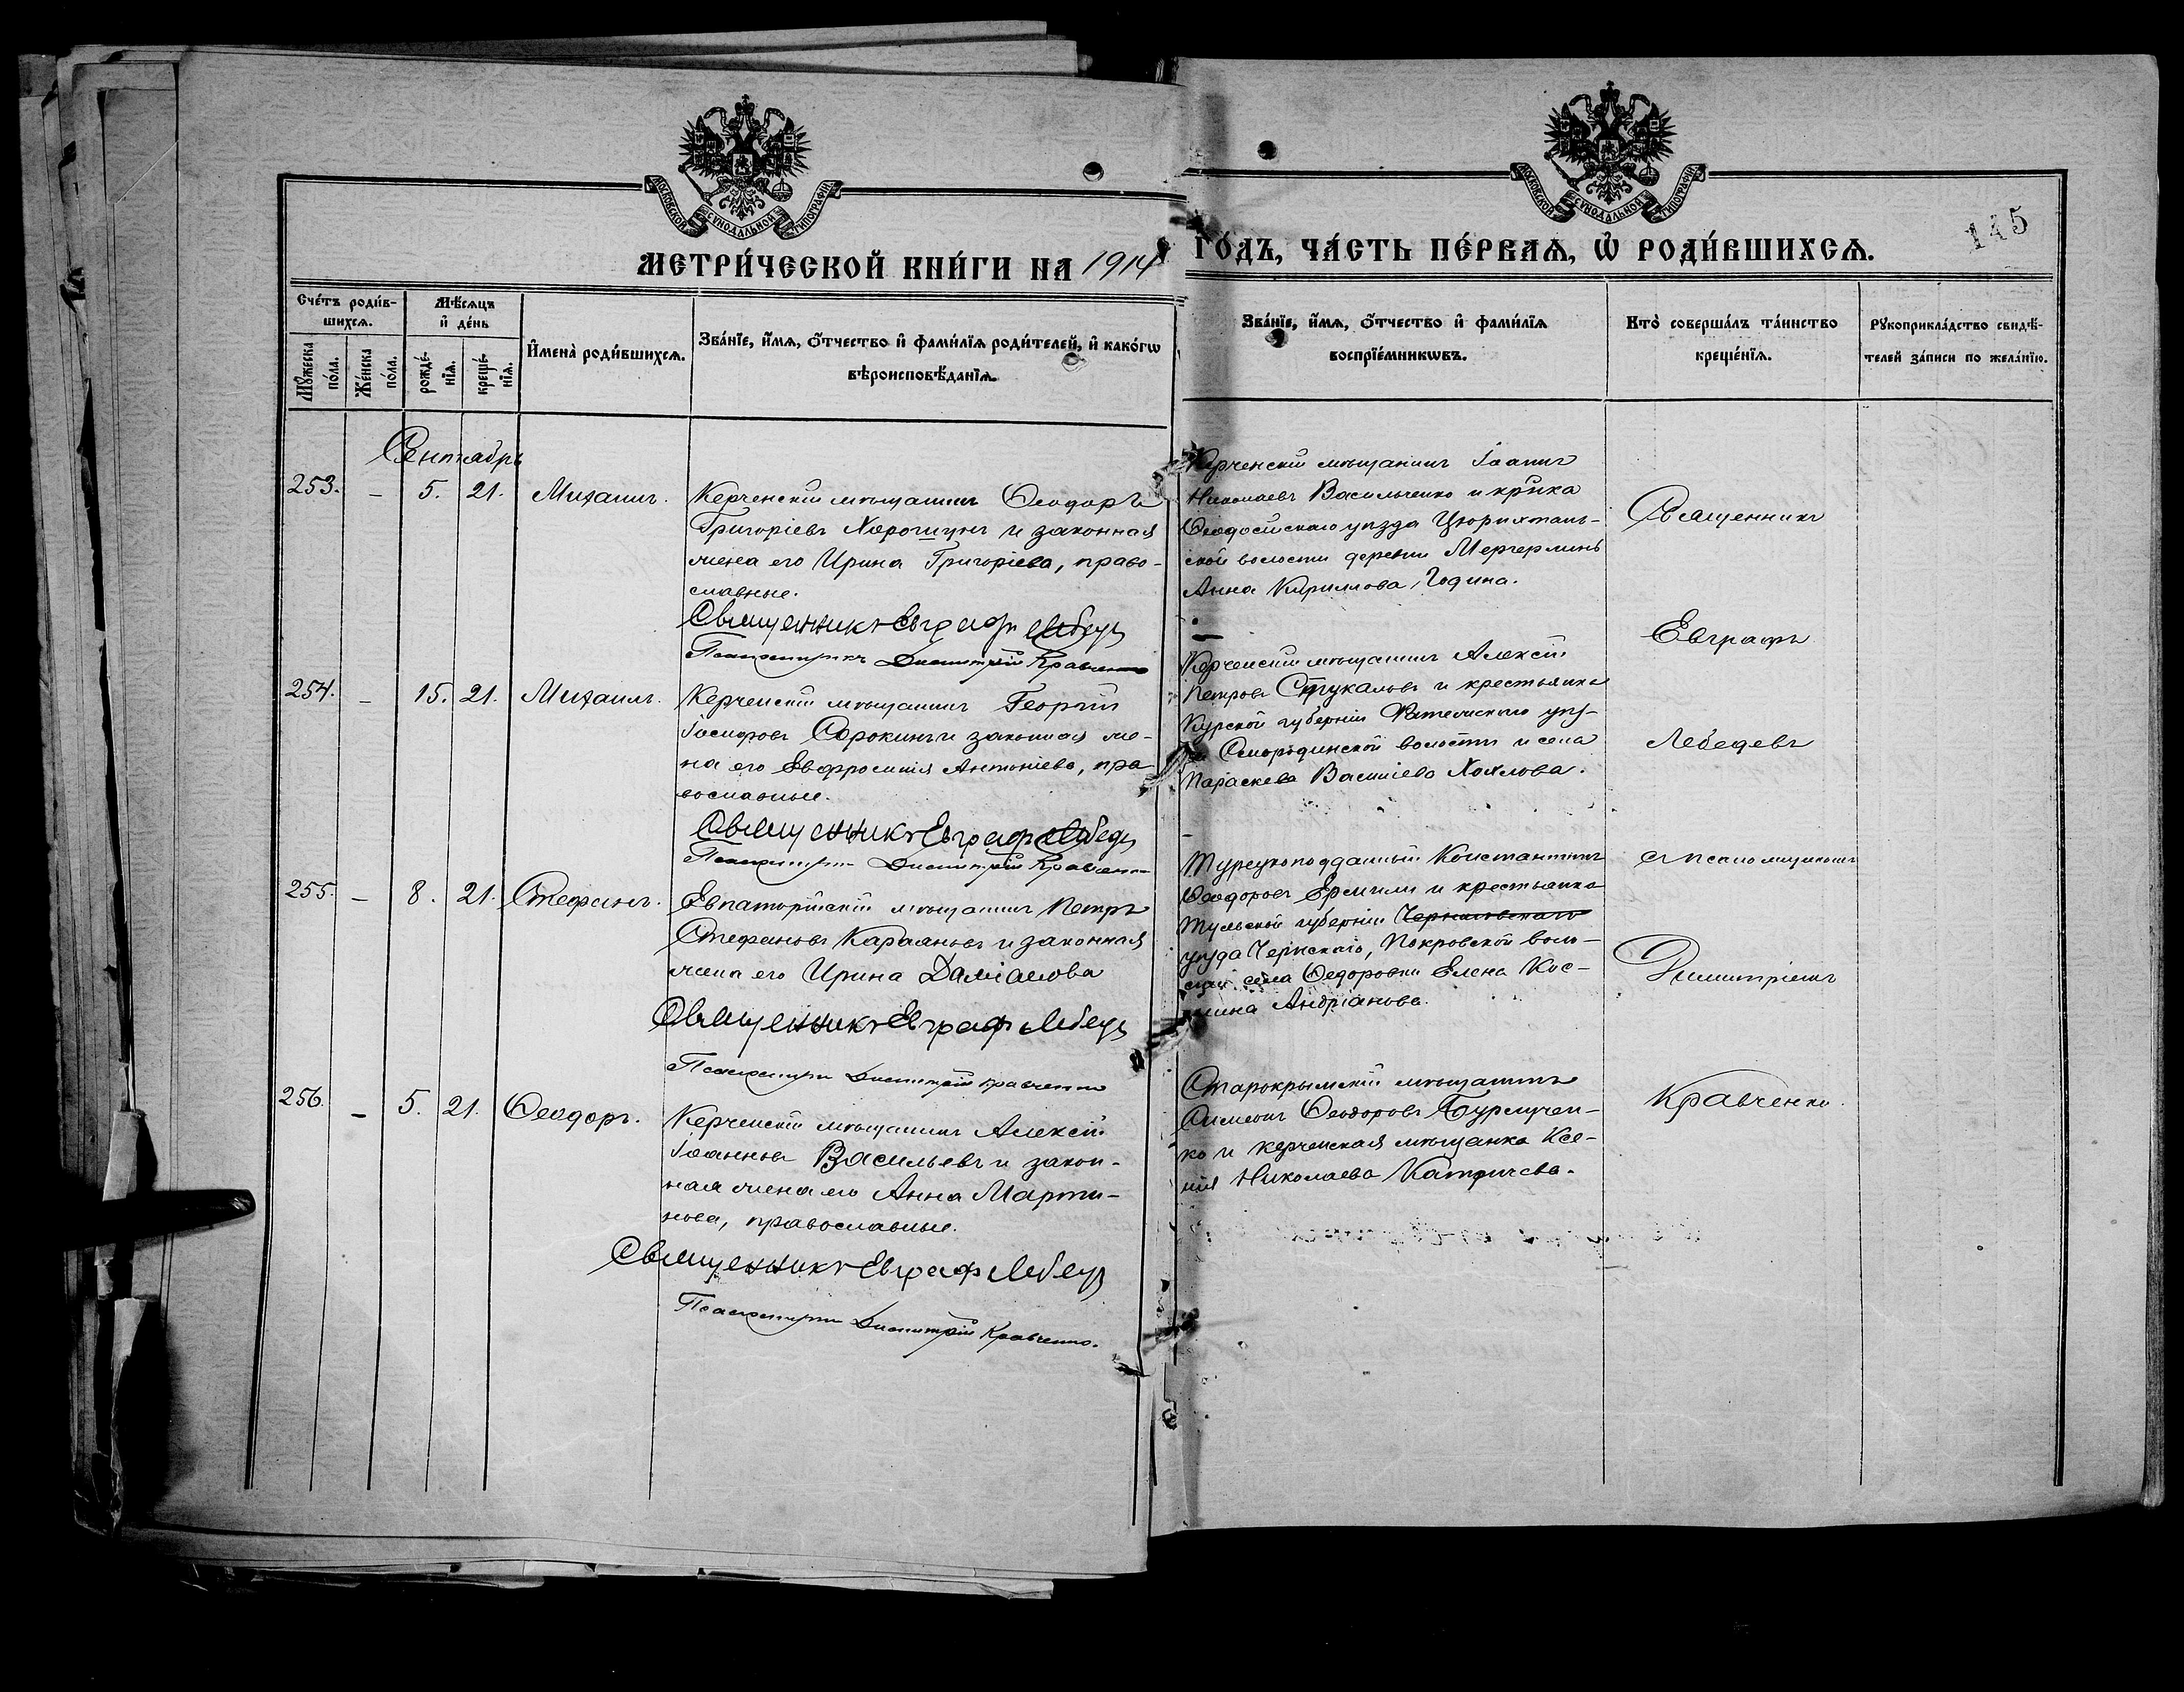 МОСКОВСКОЙ СѴНОДАЛЬНОЙ ТИПОГРАФІИ
МОСКОВСКОЙ СѴНОДАЛЬНОЙ ТИПОГРАФІИ
145
МЕТРИ́ЧЕСКОЙ КНИ́ГИ НА 1914 ГО́ДЪ, ЧА́СТЬ ПЕ́РВАѦ, Ѡ҆ РОДИ́ВШИХСѦ.
Сче́тъ роди́в-
шихсѧ.
Мѣ́сѧцъ
и҆ де́нь
Мꙋ́жеска
по́ла.
Же́нска
по́ла.
рожде́-
нїѧ.
креще́-
нїѧ.
И҆мена̀ роди́вшихсѧ.
Зва́нїе, и҆́мѧ, ѻ҆́тчество и҆ фами́лїѧ роди́телей, и҆ како́гѡ
вѣроисповѣ́данїѧ.
Зва́нїе, и҆́мѧ, ѻ҆́тчество и҆ фами́лїѧ
воспрїе́мникѡвъ.
Кто̀ соверша́лъ та́инство
креще́нїѧ.
Рꙋкоприкла́дство свидѣ́-
телей за́писи по жела́нїю.
Сентябрь
253. – 5. 21. Михаилъ.
Керченскій мѣщанинъ Ѳеодоръ
Григоріевъ Хорошунъ и законная
жена его Ирина Григоріева, право-
славные.
Священникъ Евграфъ Лебедевъ
Псаломщикъ Димитрій Кравченко
Керченскій мѣщанинъ Іоаннъ
Николаевъ Васильченко и кр̃нка
Ѳеодосійскаго уѣзда Цюрихталь-
ской волости деревни
Анна Кириллова Година.
254. – 15. 21. Михаилъ.
Керченскій мѣщанинъ Георгій
Іосифовъ Сорокинъ и законная же-
на его Евфросинія Антоніева, пра-
вославные.
Священникъ Евграфъ Лебедевъ
Псаломщикъ Димитрій Кравченко
Керченскій мѣщанинъ Алексій
Петровъ Стукаловъ и крестьянка
Курской губерніи уѣз-
Смородинской волости и села
Параскева Василіева Хохлова.
255. – 8. 21. Стефанъ.
Евпаторійскій мѣщанинъ Петръ
Стефановъ Караяновъ и законная
жена его Ирина Даміанова
Священникъ Евграфъ Лебедевъ
Псаломщикъ Димитрій Кравченко
Турецкоподданный Константинъ
Ѳеодоровъ Ермили и крестьянка
Тульской губерніи
уѣзда Чернскаго, Покровской воло-
сти села Ѳедоровки Елена Кос-
мина Андріанова.
256. – 5. 21. Ѳеодоръ.
Керченскій мѣщанинъ Алексій
Іоанновъ Васильевъ и закон-
ная жена его Анна Марти-
нова, православные.
Священникъ Евграфъ Лебедевъ
Псаломщикъ Димитрій Кравченко.
Старокрымскій мѣщанинъ
Симеонъ Ѳеодоровъ Бурлучен-
ко и керченская мѣщанка Ксе-
нія Николаева
Священникъ
Евграфъ
Лебедевъ
съ псаломщикомъ
Димитріемъ
Кравченко.